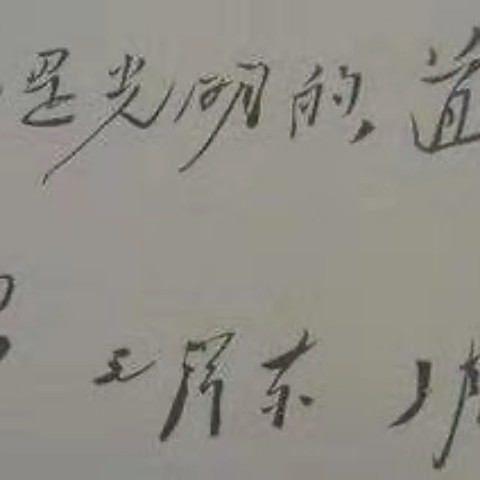 是光明的，道
毛泽东